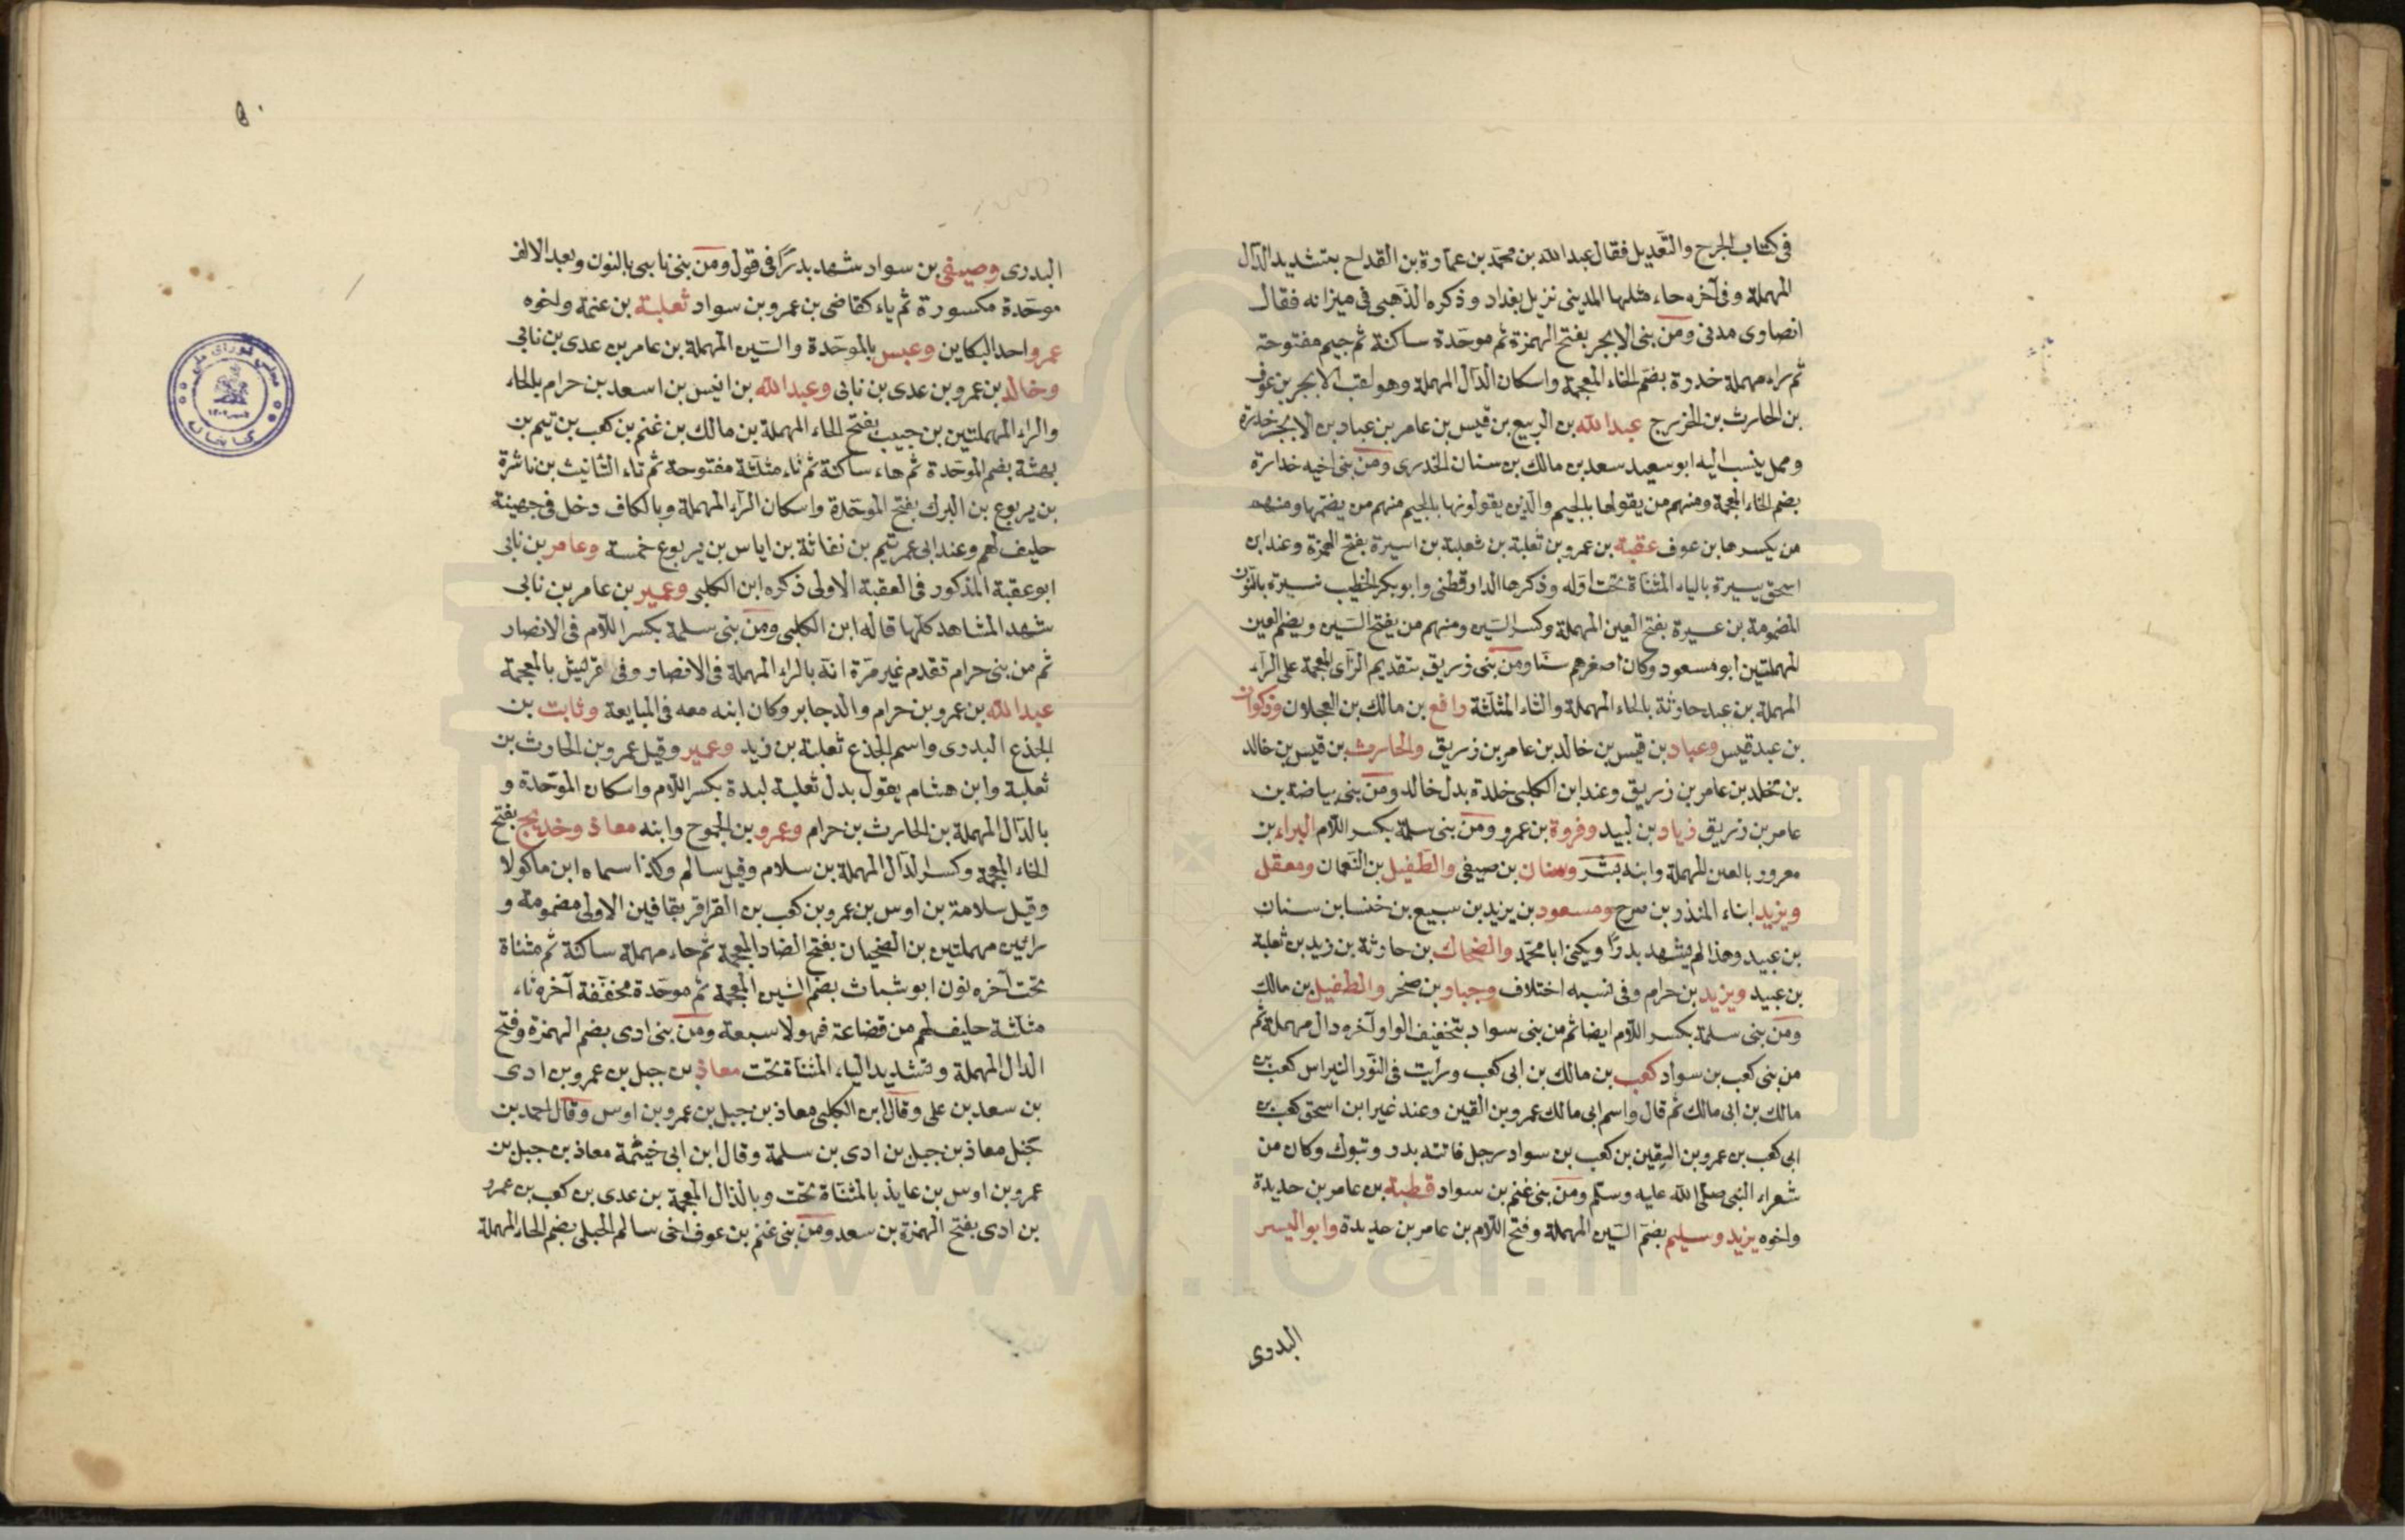 في كتاب الجرح والتعديل فقال عبد الله بن محمد بن عمارة بن القداح بتشديد الدال
المهملة وفي آخره حاء مثلها المديني نزيل بغداد وذكره الذهبي في ميزانه فقال
انصاري مدني ومن بني الابجر بفتح الهمزة ثم موحدة ساكنة ثم جيم مفتوحة
ثم راء مهملة خدرة بضم الخاء المعجمة واسكان الدال المهملة وهو لقب الابجر بن عوف
بن الحارث بن الخزرج عبد الله بن الربيع بن قيس بن عامر بن عباد بن الابجر خدرة
وممل ينسب اليه ابو سعيد سعد بن مالك بن سنان الخدري ومن بني اخيه خدارة
بضم الخاء المعجمة ومنهم من يقولها بالجيم والذين يقولونها بالجيم منهم من يضمها ومنهم
من يكسرها بن عوف عقبة بن عمرو بن ثعلبة بن ثعلبة بن اسيرة بفتح الهمزة وعند ابن
اسحق يسيرة بالياء المثناة تحت اوله وذكرها الدارقطني وابو بكر الخطيب نسيرة بالنون
المضمومة بن عسيرة بفتح العين المهملة وكسر السين ومنهم من يفتح السين ويضم العين
المهملتين ابو مسعود وكان اصغرهم سنا ومن بني زريق بتقديم الزاي المعجمة على الراء
المهملة بن عبد حارثة بالحاء المهملة والثاء المثلثة رافع بن مالك بن العجلان وذكوان
بن عبد قيس وعباد بن قيس بن خالد بن عامر بن زريق والحارث بن قيس بن خالد
بن مخلد بن عامر بن زريق وعند ابن الكلبي خلدة بدل خالد ومن بني بياضة بن
عامر بن زريق زياد بن لبيد وفروة بن عمرو ومن بني سلمة بكسر اللام البراء بن
معرور بالعين المهملة وابنه بشر وسنان بن صيفي والطفيل بن النعمان ومعقل
ويزيد ابناء المنذر بن سرح ومسعود بن يزيد بن سبيع بن خنسا بن سنان
بن عبيد وهذا لم يشهد بدرا ويكنى ابا محمد والضحاك بن حارثة بن زيد بن ثعلبة
بن عبيد ويزيد بن حرام وفي نسبه اختلاف وجبار بن صخر والطفيل بن مالك
ومن بني سلمة بكسر اللام ايضا ثم من بني سواد بتخفيف الواو آخره دال مهملة ثم
من بني كعب بن سواد كعب بن مالك بن ابي كعب ورأيت في النور النبراس كعب بن
مالك بن ابي مالك ثم قال واسم ابي مالك عمرو بن القين وعند غير ابن اسحق كعب بن
ابي كعب بن عمرو بن القين بن كعب بن سواد رجل فاتته بدر وتبوك وكان من
شعراء النبي صلى الله عليه وسلم ومن بني غنم بن سواد قطبة بن عامر بن حديدة
واخوه يزيد وسليم بضم السين المهملة وفتح اللام بن عامر بن حديدة وابو اليسر
البدري
٥٠
البدري وصيفي بن سواد شهد بدرا في قول ومن بني نابي بالنون وبعد الالف
موحدة مكسورة ثم ياء كقاضي بن عمرو بن سواد ثعلبة بن عنمة واخوه
عمرو احد البكاين وعبس بالموحدة والسين المهملة بن عامر بن عدي بن نابي
وخالد بن عمرو بن عدي بن نابي وعبد الله بن انيس بن اسعد بن حرام بالحاء
والراء المهملتين بن حبيب بفتح الحاء المهملة بن مالك بن غنم بن كعب بن تيم بن
بهثة بضم الموحدة ثم هاء ساكنة ثم ثاء مثلثة مفتوحة ثم تاء التانيث بن ناشرة
بن يربوع بن البرك بفتح الموحدة واسكان الراء المهملة وبالكاف دخل في جهينة
حليف لهم وعند ابي عمر تيم بن نفاثة بن اياس بن يربوع خمسة وعامر بن نابي
ابو عقبة المذكور في العقبة الاولى ذكره ابن الكلبي وعمير بن عامر بن نابي
شهد المشاهد كلها قاله ابن الكلبي ومن بني سلمة بكسر اللام في الانصار
ثم من بني حرام تقدم غير مرة انه بالراء المهملة في الانصار وفي قريش بالمعجمة
عبد الله بن عمرو بن حرام والد جابر وكان ابنه معه في المبايعة وثابت بن
الجذع البدري واسم الجذع ثعلبة بن زيد وعمير وقيل عمرو بن الحارث بن
ثعلبة وابن هشام يقول بدل ثعلبة لبدة بكسر اللام واسكان الموحدة و
بالدال المهملة بن الحارث بن حرام وعمرو بن الجموح وابنه معاذ وخديج بفتح
الخاء المعجمة وكسر الدال المهملة بن سلام وقيل سالم وكذا سماه ابن ماكولا
وقيل سلامة بن اوس بن عمرو بن كعب بن القراقر بقافين الاولى مضمومة و
رائين مهملتين بن الضحيان بفتح الضاد المعجمة ثم حاء مهملة ساكنة ثم مثناة
تحت آخره نون ابو شباث بضم الشين المعجمة ثم موحدة مخففة آخره ثاء
مثلثة حليف لهم من قضاعة فهولا سبعة ومن بني ادي بضم الهمزة وفتح
الدال المهملة وتشديد الياء المثناة تحت معاذ بن جبل بن عمرو بن ادي
بن سعد بن علي وقال ابن الكلبي معاذ بن جبل بن عمرو بن اوس وقال احمد بن
حنبل معاذ بن جبل بن ادي بن سلمة وقال ابن ابي خيثمة معاذ بن جبل بن
عمرو بن اوس بن عايذ بالمثناة تحت وبالذال المعجمة بن عدي بن كعب بن عمرو
بن ادي بفتح الهمزة بن سعد ومن بني غنم بن عوف اخي سالم الحبلي بضم الحاء المهملة
كتابخانه مجلس شوراى ملى
www.ical.ir